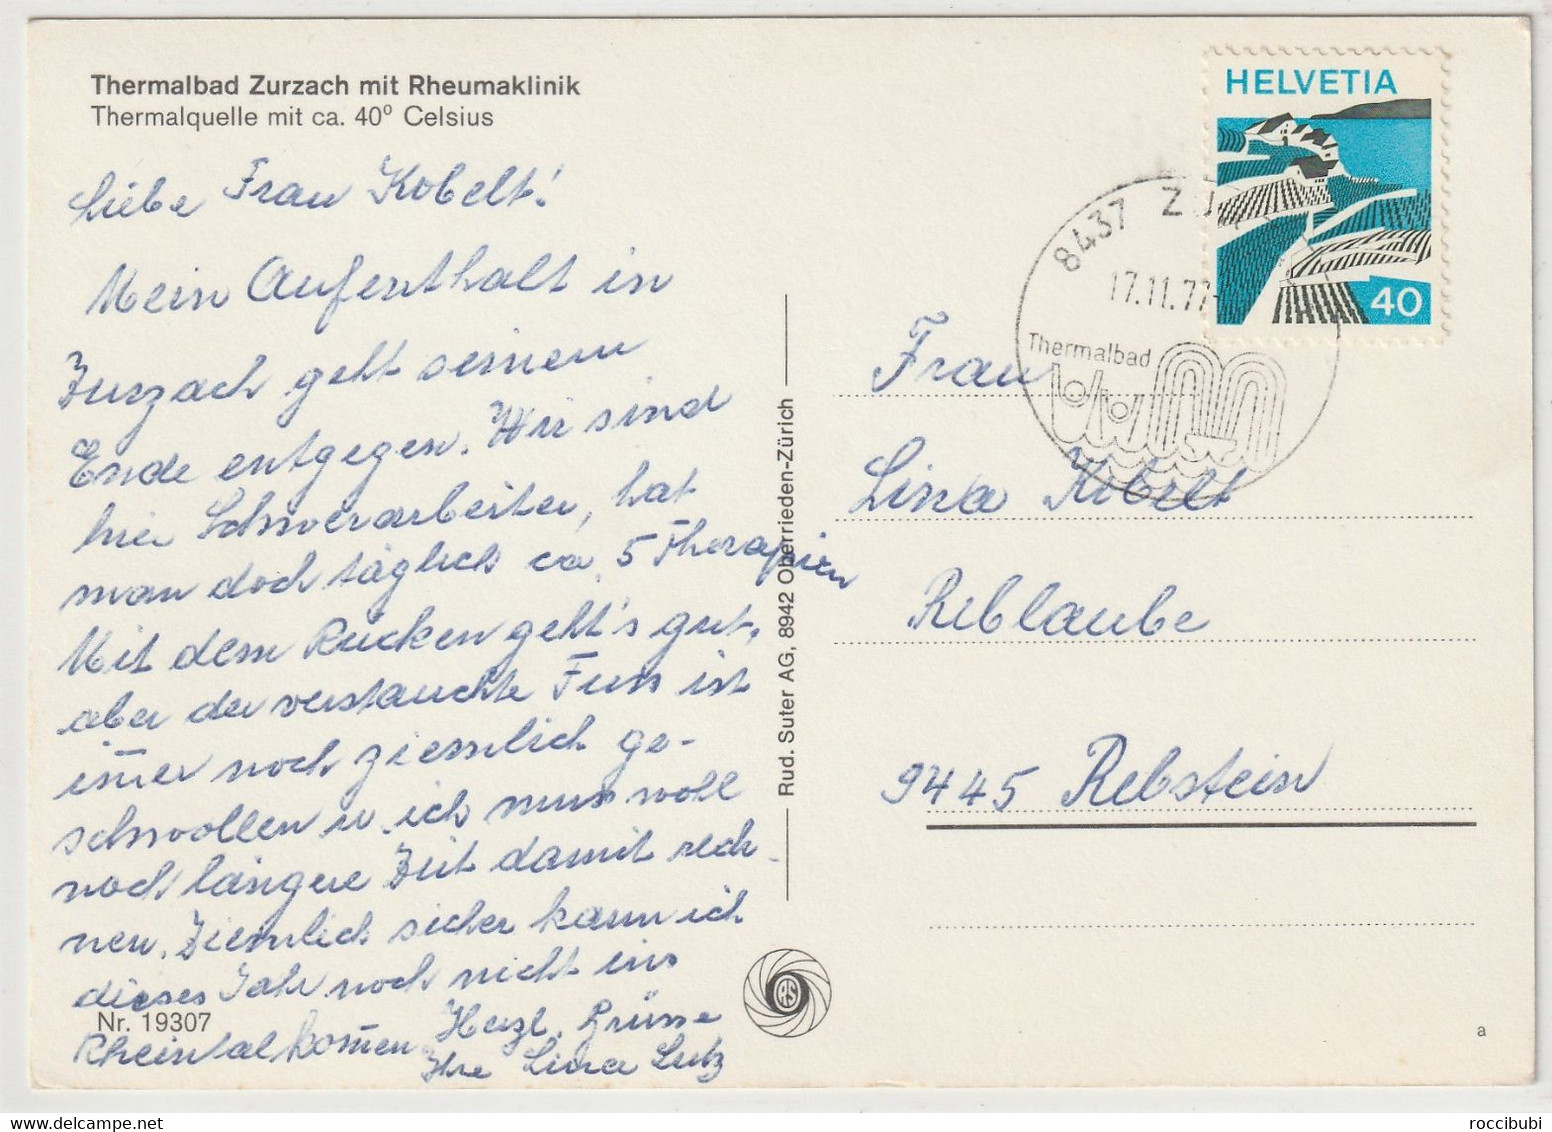 Thermalbad Zurzach mit Rheumaklinik
Thermalquelle mit ca. 40° Celsius
Liebe Frau Kobelt!
Mein Aufenthalt in
Zurzach geht seinem
Ende entgegen. Wir sind
hier Schwerarbeiter, hat
man doch täglich ca. 5 Therapien
Mit dem Rücken geht's gut,
aber der verstauchte Fuss ist
im̅er noch ziemlich ge-
schwollen u. ich muss wohl
noch längere Zeit damit rech-
nen. Ziemlich sicher kann ich
dieses Jahr noch nicht ins
Rheintal kom̅en. Herzl. Grüsse
Ihre Lina Lutz
Nr. 19307
Rud. Suter AG, 8942 Oberrieden-Zürich
RS
HELVETIA
40
8437 ZU
17.11.77
Thermalbad
Frau
Lina Kobelt
Reblaube
9445 Rebstein
a
roccibubi